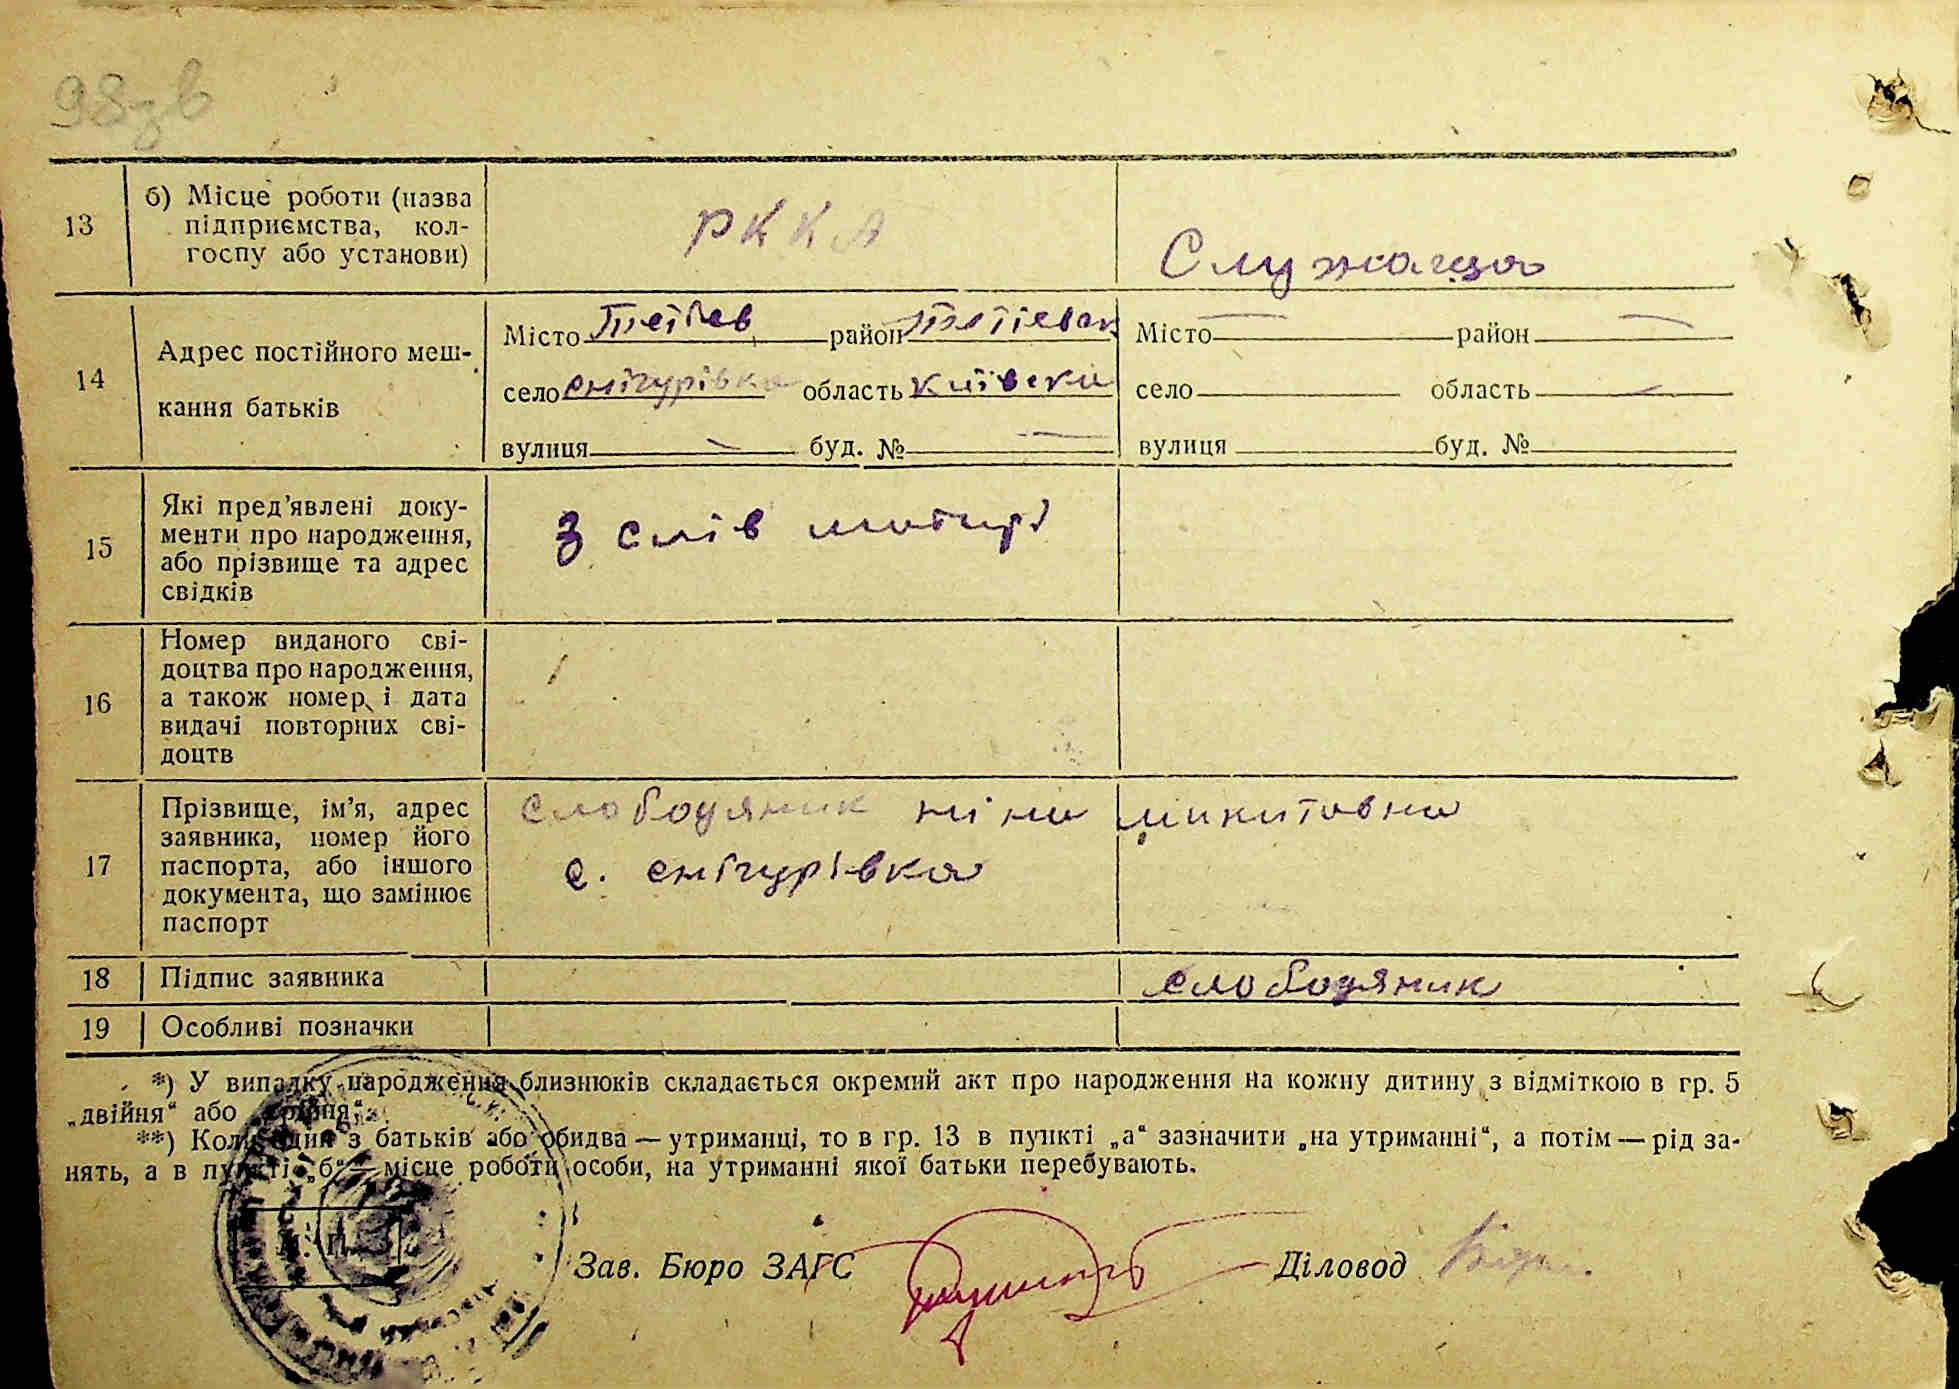 98зв
13 б) Місце роботи (назва підприємства, колгоспу або установи) РККА Служаща
14 Адрес постійного мешкання батьків
Місто Тетіев район Тетіевск Місто — район —
село Снігурівка область Київска село область —
вулиця — буд. № — вулиця буд. №
15 Які пред'явлені доку-
менти про народження, З слів матирі
або прізвище та адрес
свідків
16 Номер виданого сві-
доцтва про народження,
а також номер і дата
видачі повторних сві-
доцтв
17 Прізвище, ім'я, адрес Слободяник Ніна Микитовна
заявника, номер його
паспорта, або іншого с. Снігурівка
документа, що замінює
паспорт
18 Підпис заявника Слободяник
19 Особливі позначки
*) У випадку народження близнюків складається окремий акт про народження на кожну дитину з відміткою в гр. 5
„двійня“ або „трійня“.
**) Коли один з батьків або обидва — утриманці, то в гр. 13 в пункті „а“ зазначити „на утриманні“, а потім — рід за-
нять, а в пункті „б“ — місце роботи особи, на утриманні якої батьки перебувають.
М. П.
Зав. Бюро ЗАГС Діловод